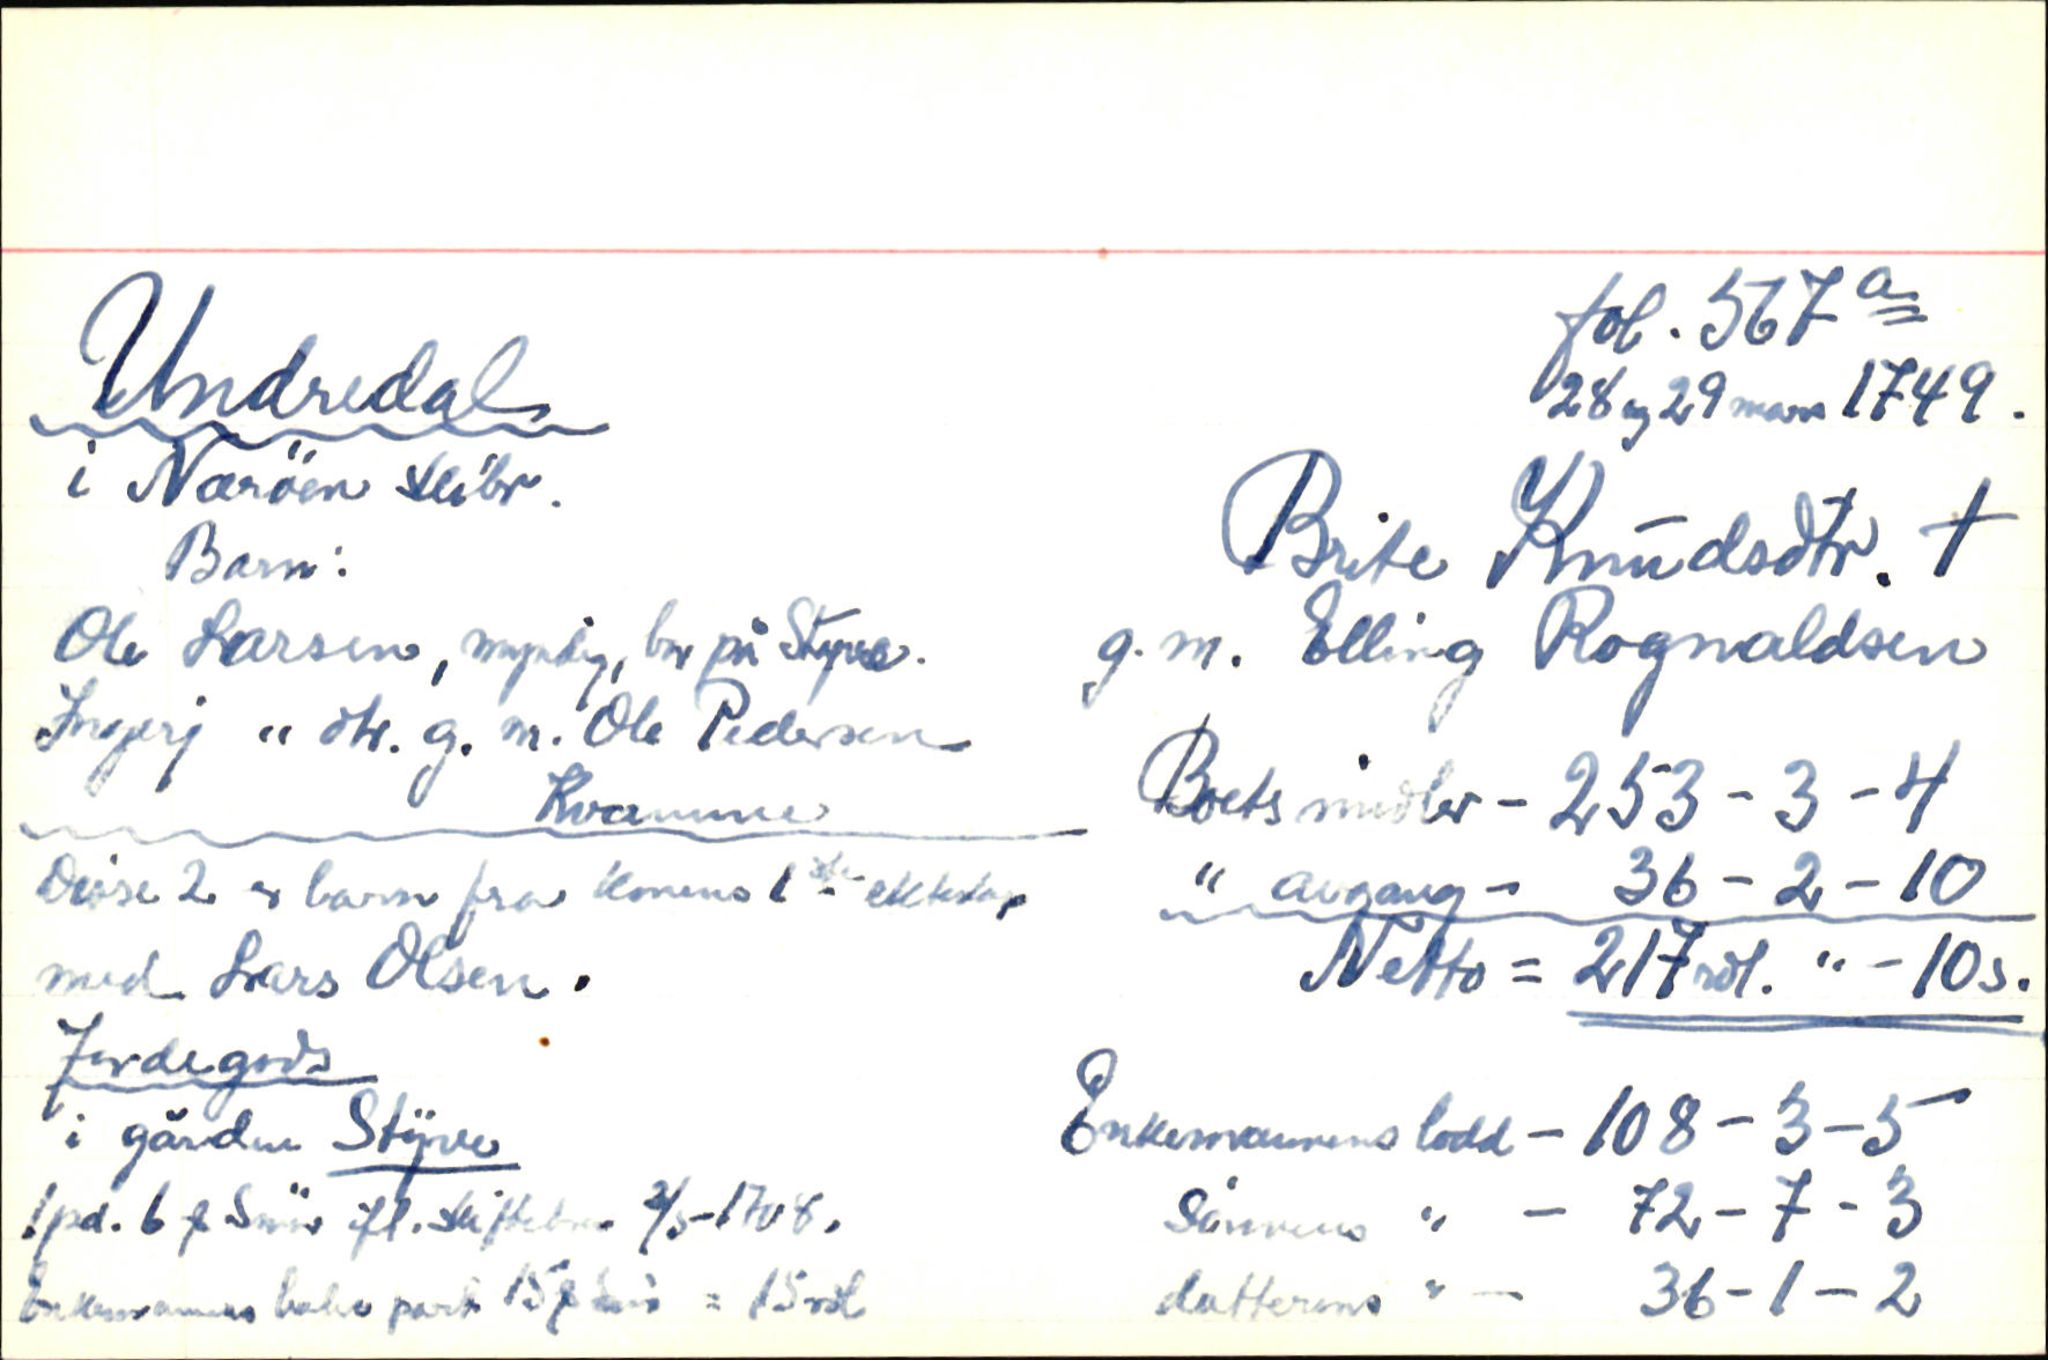 fol. 567 a
28 og 29 mars 1749.
Undredal
i Næröen skibr.
Barn:
Ole Larsen, myndig, bor på Styve.
Ingerj " dtr. g. m. Ole Pedersen
Kvamme
Disse 2 er barn fra konens 1ste ekteskap
med Lars Olsen.
Jordegods
i gården Stÿve
1 pd. 6 smör ifl. skiftebrev 1708.
Enkemannens halve part 15 smör = 15 rdl
Brite Knūdsdtr. †
g. m. Elling Rognaldsen
Boets midler - 253 - 3 - 4
" avgang - 36 - 2 - 10
Netto = 217 rdl. " - 10 s.
Enkemannens lodd - 108 - 3 - 5
Sönnens " - 72 - 7 - 3
datterens " - 36 - 1 - 2